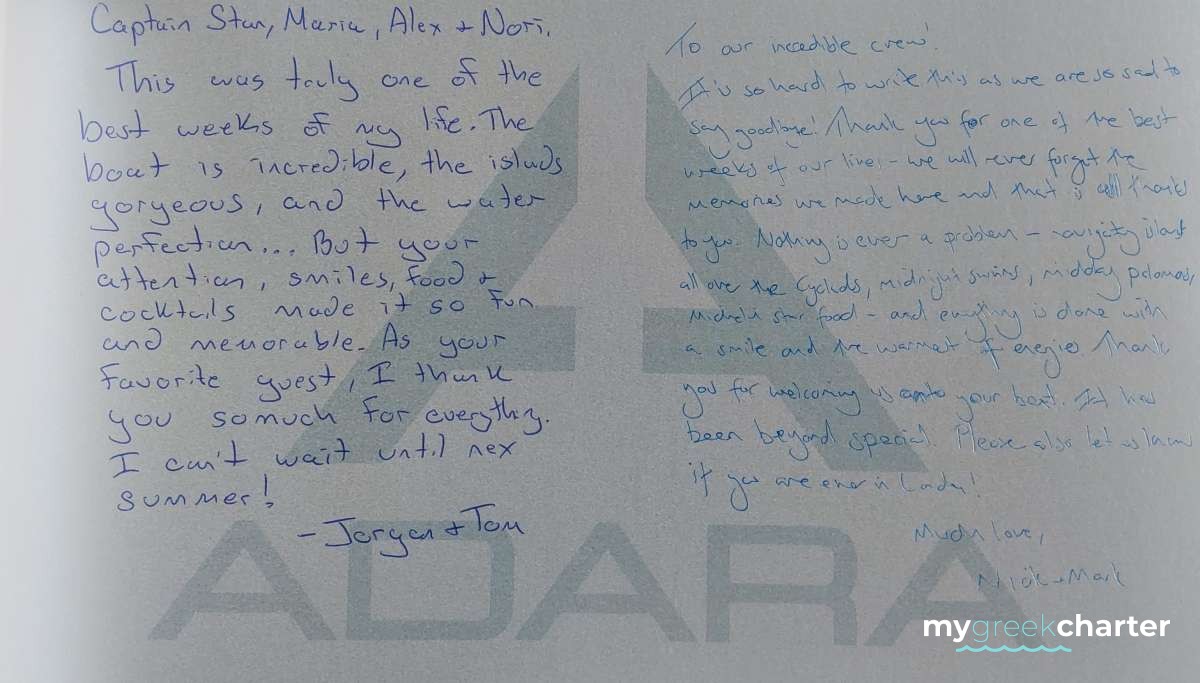 Captain Stav, Maria, Alex + Nori,
This was truly one of the
best weeks of my life. The
boat is incredible, the islads
gorgeous, and the water
perfection... But your
attention, smiles, food +
cocktails made it so fun
and memorable. As your
favorite guest, I thank
you somuch for everything.
I can't wait until nex
summer!
- Jorgen + Tom
To our incredible crew!
It's so hard to write this as we are so sad to
say goodbye! Thank you for one of the best
weeks of our lives - we will never forget the
memories we made here and that is all thanks
to you. Nothing is ever a problem - navigating
all over the Cyclads, midnight swims, midday palomas,
Michelin star food - and everything is done with
a smile and the warmest of energie. Thank
you for welcoming us onto your boat. It has
been beyond special. Please also let us know
if you are ever in London!
Much love,
Nick + Mark
ADARA
mygreekcharter